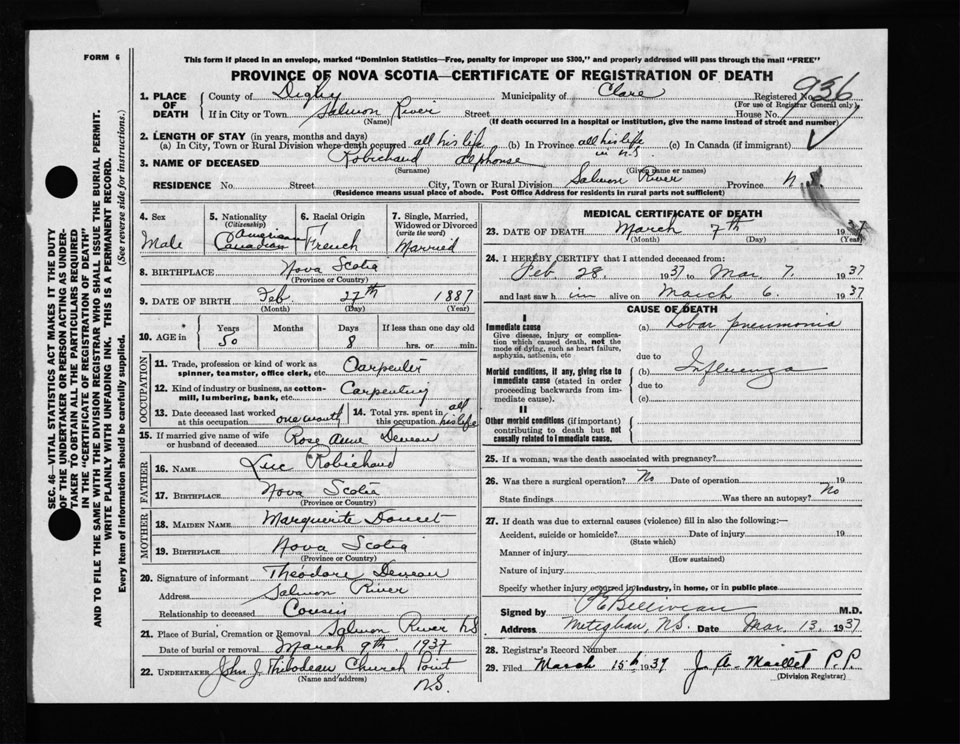 FORM 6
This form if placed in an envelope, marked "Dominion Statistics—Free, penalty for improper use $300," and properly addressed will pass through the mail "FREE"
PROVINCE OF NOVA SCOTIA—CERTIFICATE OF REGISTRATION OF DEATH
1. PLACE OF DEATH
County of Digby Municipality of Clare Registered No. 936
(For use of Registrar General only)
If in City or Town Salmon River Street House No.
(Name) (If death occurred in a hospital or institution, give the name instead of street and number)
2. LENGTH OF STAY (in years, months and days)
(a) In City, Town or Rural Division where death occurred all his life (b) In Province all his life in N.S. (c) In Canada (if immigrant)
3. NAME OF DECEASED Robichaud Alphonse
(Surname) (Given name or names)
RESIDENCE No. Street City, Town or Rural Division Salmon River Province N.S.
(Residence means usual place of abode. Post Office Address for residents in rural parts not sufficient)
SEC. 46—VITAL STATISTICS ACT MAKES IT THE DUTY
OF THE UNDERTAKER OR PERSON ACTING AS UNDER-
TAKER TO OBTAIN ALL THE PARTICULARS REQUIRED
IN THE "CERTIFICATE OF REGISTRATION OF DEATH"
AND TO FILE THE SAME WITH THE DIVISION REGISTRAR WHO SHALL ISSUE THE BURIAL PERMIT.
WRITE PLAINLY WITH UNFADING INK. THIS IS A PERMANENT RECORD.
Every item of information should be carefully supplied. (See reverse side for instructions.)
4. Sex Male
5. Nationality (Citizenship) Canadian
6. Racial Origin French
7. Single, Married, Widowed or Divorced (write the word) Married
8. BIRTHPLACE Nova Scotia
(Province or Country)
9. DATE OF BIRTH Feb. 27th 1887
(Month) (Day) (Year)
10. AGE in Years 50 Months Days 8 If less than one day old hrs. or min.
OCCUPATION
11. Trade, profession or kind of work as spinner, teamster, office clerk, etc. Carpenter
12. Kind of industry or business, as cotton-mill, lumbering, bank, etc. Carpentry
13. Date deceased last worked at this occupation one month 14. Total yrs. spent in this occupation all his life
15. If married give name of wife or husband of deceased Rose Anne Deveau
FATHER
16. NAME Luc Robichaud
17. BIRTHPLACE Nova Scotia
(Province or Country)
MOTHER
18. MAIDEN NAME Marguerite Doucet
19. BIRTHPLACE Nova Scotia
(Province or Country)
20. Signature of informant Théodore Deveau
Address Salmon River
Relationship to deceased Cousin
21. Place of Burial, Cremation or Removal Salmon River N.S.
Date of burial or removal March 9th. 1937
22. UNDERTAKER John J. Thibodeau Church Point N.S.
(Name and address)
MEDICAL CERTIFICATE OF DEATH
23. DATE OF DEATH March 7th 1937
(Month) (Day) (Year)
24. I HEREBY CERTIFY that I attended deceased from:
Feb. 28. 1937 to Mar. 7. 1937
and last saw him alive on March 6. 1937
CAUSE OF DEATH
I
Immediate cause (a) Lobar pneumonia
Give disease, injury or complication which caused death, not the mode of dying, such as heart failure, asphyxia, asthenia, etc
due to
Morbid conditions, if any, giving rise to immediate cause (stated in order proceeding backwards from immediate cause). (b) Influenza
due to
(c)
II
Other morbid conditions (if important) contributing to death but not causally related to immediate cause.
25. If a woman, was the death associated with pregnancy?
26. Was there a surgical operation? No Date of operation 19
State findings Was there an autopsy? No
27. If death was due to external causes (violence) fill in also the following:—
Accident, suicide or homicide? Date of injury 19
(State which)
Manner of injury
(How sustained)
Nature of injury
Specify whether injury occurred in industry, in home, or in public place
Signed by P E Belliveau M.D.
Address Meteghan, N.S. Date Mar. 13. 1937
28. Registrar's Record Number
29. Filed March 15th 1937 J. A. Maillet P.P.
(Division Registrar)